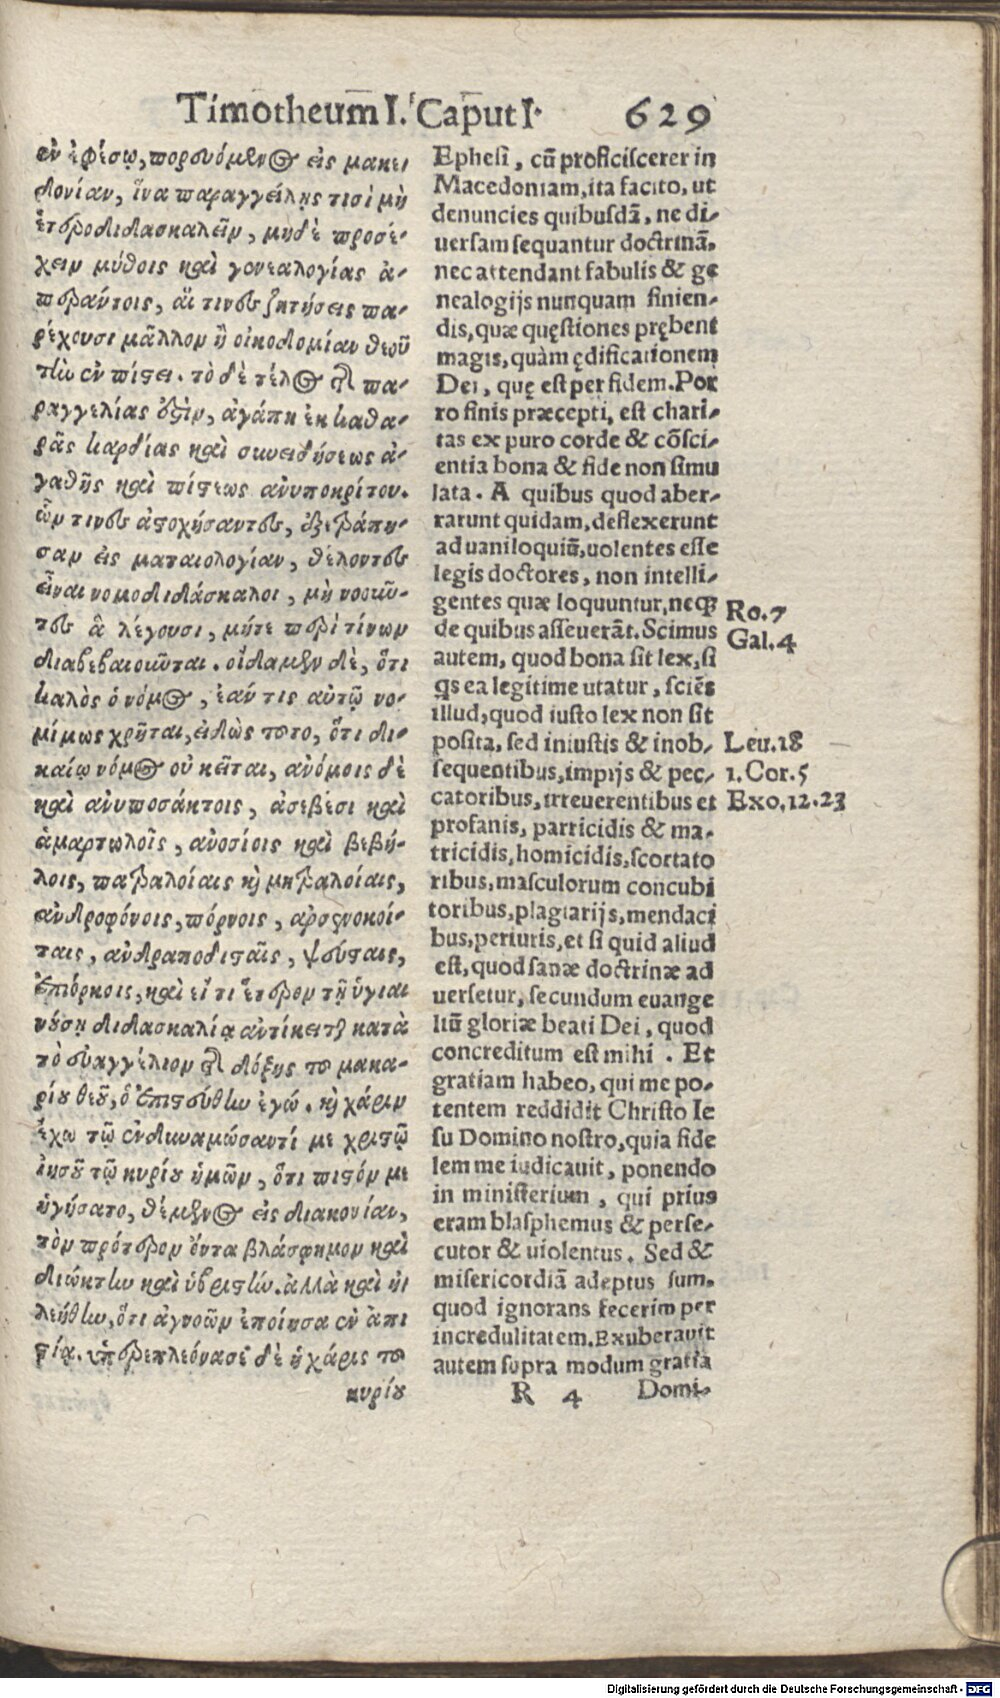 Timotheum I. Caput I. 629
ἐν ἐφέσῳ, πορευόμενος εἰς μακε-
δονίαν, ἵνα παραγγείλῃς τισὶ μὴ
ἑτεροδιδασκαλεῖν, μηδὲ προσέ-
χειν μύθοις καὶ γενεαλογίας ἀ-
περάντοις, αἵ τινες ζητήσεις πα-
ρέχουσι μᾶλλον ἢ οἰκοδομίαν θεοῦ
τὴν ἐν πίστει. τὸ δὲ τέλος τῆς πα-
ραγγελίας ἐστὶν, ἀγάπη ἐκ καθα-
ρᾶς καρδίας καὶ συνειδήσεως ἀ-
γαθῆς καὶ πίστεως ἀνυποκρίτου.
ὧν τινες ἀστοχήσαντες, ἐξετράπη-
σαν εἰς ματαιολογίαν, θέλοντες
εἶναι νομοδιδάσκαλοι, μὴ νοοῦν-
τες ἃ λέγουσι, μήτε περὶ τίνων
διαβεβαιοῦνται. οἴδαμεν δὲ, ὅτι
καλὸς ὁ νόμος, ἐάν τις αὐτῷ νο-
μίμως χρῆται, εἰδὼς τοῦτο, ὅτι δι-
καίῳ νόμος οὐ κεῖται, ἀνόμοις δὲ
καὶ ἀνυποτάκτοις, ἀσεβέσι καὶ
ἁμαρτωλοῖς, ἀνοσίοις καὶ βεβή-
λοις, πατραλοίαις καὶ μητραλοίαις,
ἀνδροφόνοις, πόρνοις, ἀρσενοκοί-
ταις, ἀνδραποδισταῖς, ψεύσταις,
ἐπιόρκοις, καὶ εἴ τι ἕτερον τῇ ὑγιαι
νούσῃ διδασκαλίᾳ ἀντίκειται κατὰ
τὸ εὐαγγέλιον τῆς δόξης τοῦ μακα-
ρίου θεοῦ, ὃ ἐπιστεύθην ἐγώ. καὶ χάριν
ἔχω τῷ ἐνδυναμώσαντί με χριστῷ
ἰησοῦ τῷ κυρίῳ ἡμῶν, ὅτι πιστόν με
ἡγήσατο, θέμενος εἰς διακονίαν,
τὸν πρότερον ὄντα βλάσφημον καὶ
διώκτην καὶ ὑβριστήν. ἀλλὰ καὶ ἠ
λεήθην, ὅτι ἀγνοῶν ἐποίησα ἐν ἀπι
στίᾳ. ὑπερεπλεόνασε δὲ ἡ χάρις τοῦ
κυρίου
Ephesi, cū proficiscerer in
Macedoniam, ita facito, ut
denuncies quibusdā, ne di-
uersam sequantur doctrinā,
nec attendant fabulis & ge
nealogijs nunquam finien-
dis, quæ quęstiones prębent
magis, quàm ędificationem
Dei, quę est per fidem. Por
ro finis præcepti, est chari-
tas ex puro corde & cōsci-
entia bona & fide non simu
lata. A quibus quod aber-
rarunt quidam, deflexerunt
ad uaniloquiū, uolentes esse
legis doctores, non intelli-
gentes quæ loquuntur, neq;
de quibus asseuerāt. Scimus
autem, quod bona sit lex, si
qs ea legitime utatur, sciēs
illud, quod iusto lex non sit
posita, sed iniustis & inob-
sequentibus, impijs & pec-
catoribus, irreuerentibus et
profanis, parricidis & ma-
tricidis, homicidis, scortato
ribus, masculorum concubi
toribus, plagiarijs, mendaci
bus, periuris, et si quid aliud
est, quod sanæ doctrinæ ad
uersetur, secundum euange
liū gloriæ beati Dei, quod
concreditum est mihi. Et
gratiam habeo, qui me po-
tentem reddidit Christo Ie
su Domino nostro, quia fide
lem me iudicauit, ponendo
in ministerium, qui prius
eram blasphemus & perse-
cutor & uiolentus. Sed &
misericordiā adeptus sum,
quod ignorans fecerim per
incredulitatem. Exuberauit
autem supra modum gratia
R 4 Domi-
Ro. 7
Gal. 4
Leu. 18
1. Cor. 5
Exo. 12. 23
Digitalisierung gefördert durch die Deutsche Forschungsgemeinschaft - DFG